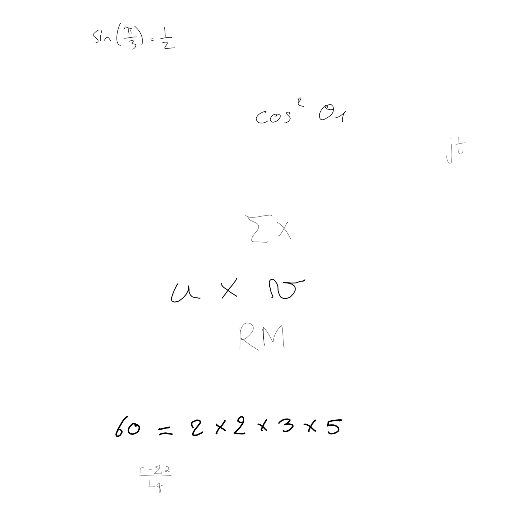 sin(π/3) = 1/2
cos² θ₁
jt
Σx
u × v
RM
60 = 2 × 2 × 3 × 5